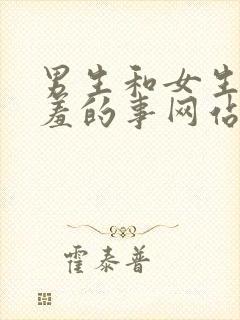 男生和女生
羞的事网站
霍泰普